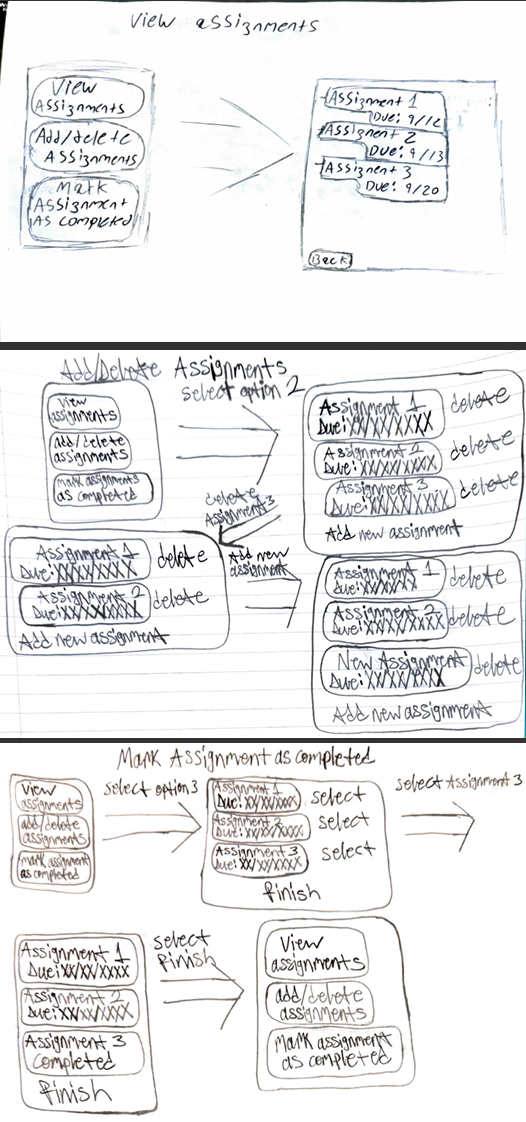 View assignments
View
Assignments
Add/delete
Assignments
Mark
Assignment
As completed
Assignment 1
Due: 9/12
Assignent 2
Due: 9/13
Assignent 3
Due: 9/20
Back
Add/Delete Assignments
select option 2
View
assignments
add/delete
assignments
mark assignments
as completed
Assignment 1
Due: XX/XX/XXXX
delete
Assignment 2
Due: XX/XX/XXXX
delete
Assignment 3
Due: XX/XX/XXXX
delete
Add new assignment
delete
Assignment 3
Assignment 1
Due: XX/XX/XXXX
delete
Assignment 2
Due: XX/XX/XXXX
delete
Add new assignment
Add new
assignment
Assignment 1
Due: XX/XX/XXXX
delete
Assignment 2
Due: XX/XX/XXXX
delete
New Assignment
Due: XX/XX/XXXX
delete
Add new assignment
Mark Assignment as completed
View
assignments
add/delete
assignments
mark assignment
as completed
select option 3
Assignment 1
Due: XX/XX/XXXX
select
Assignment 2
Due: XX/XX/XXXX
select
Assignment 3
Due: XX/XX/XXXX
select
finish
select Assignment 3
Assignment 1
Due: XX/XX/XXXX
Assignment 2
Due: XX/XX/XXXX
Assignment 3
Completed
finish
select
finish
View
assignments
add/delete
assignments
Mark assignment
as completed